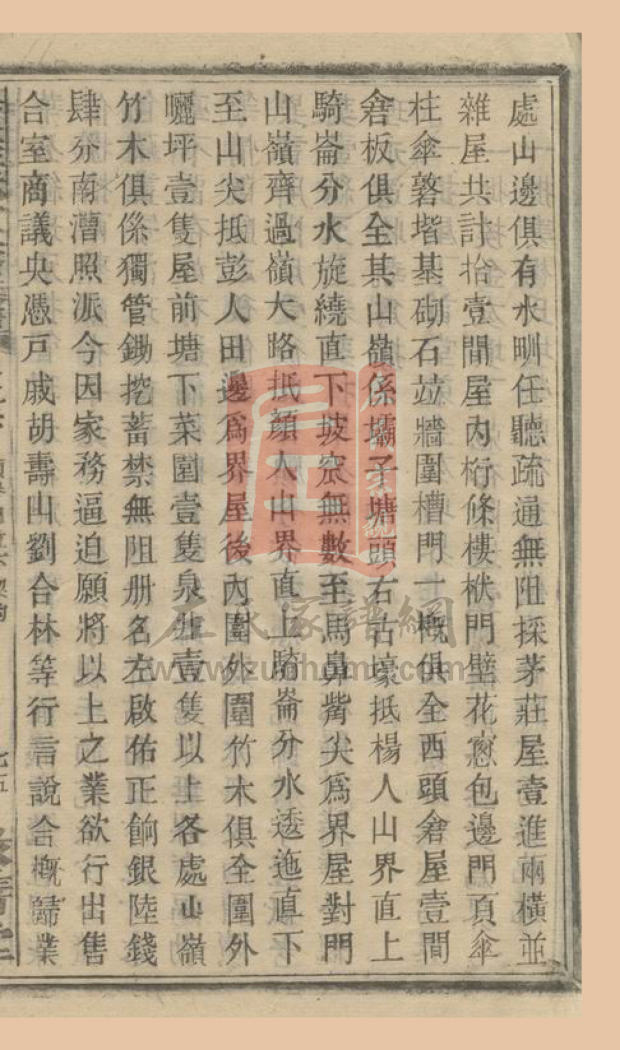 處山邊俱有水㽟任聽疏通無阻採茅莊屋壹進兩橫並
雜屋共計拾壹間屋內桁條樓栿門壁花窻包邊門頁傘
柱傘磉堦基砌石苙牆圍槽門一概俱全西頭倉屋壹間
倉板俱全其山嶺係壩子塘頭右古壕抵楊人山界直上
騎崙分水旋繞直下坡窊無數至馬鼻觜尖爲界屋對門
山嶺齊過嶺大路抵顏人山界直上騎崙分水透迤直下
至山尖抵彭人田邊爲界屋後內圍外圍竹木俱全圍外
曬坪壹隻屋前塘下菜園壹隻泉井壹隻以上各處山嶺
竹木俱係獨管鋤挖蓄禁無阻册名左啟佑正餉銀陸錢
肆分南漕照派今因家務逼迫願將以上之業欲行出售
合室商議央憑戸戚胡壽山劉合林等行言說合概歸業
左氏家譜網
www.zuohome.com